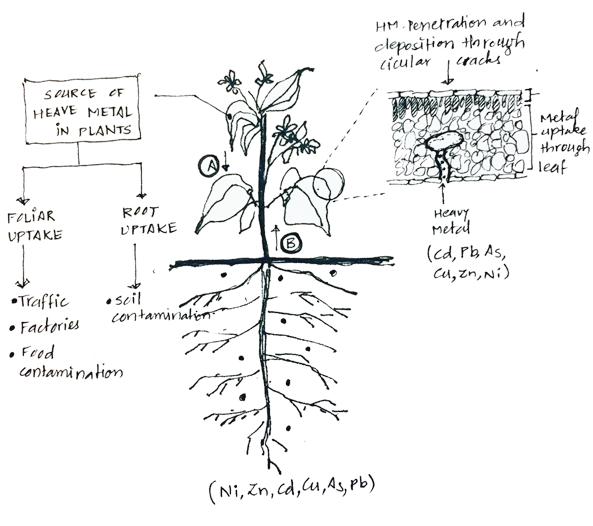 HM-Penetration and
deposition through
cicular cracks
SOURCE OF
HEAVE METAL
IN PLANTS
Metal
uptake through
leaf
A
FOLIAR
UPTAKE
ROOT
UPTAKE
B
Heavy
Metal
(Cd, Pb, As,
Cu, Zn, Ni)
• Traffic
• Factories
• Food
contamination
• Soil
contamination
(Ni, Zn, Cd, Cu, As, Pb)